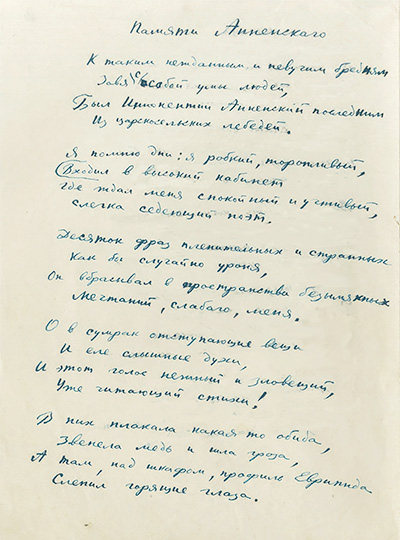 Памяти Анненскаго
К таким нежданным и певучим бредням
Зовя с собой умы людей,
Был Иннокентий Анненский последним
Из царскосельских лебедей.
Я помню дни: я робкий, торопливый,
Входил в высокий кабинет
Где ждал меня спокойный и учтивый,
слегка седеющий поэт.
Десяток фраз пленительных и странных
Как бы случайно уроня,
Он вбрасывал в пространства безымянных
Мечтаний, слабаго, меня.
О в сумрак отступающие вещи
И еле слышные духи,
И этот голос нежный и зловещий,
Уже читающий стихи!
В них плакала какая то обида,
Звенела медь и шла гроза,
А там, над шкафом, профиль Еврипида
Слепил горящие глаза.